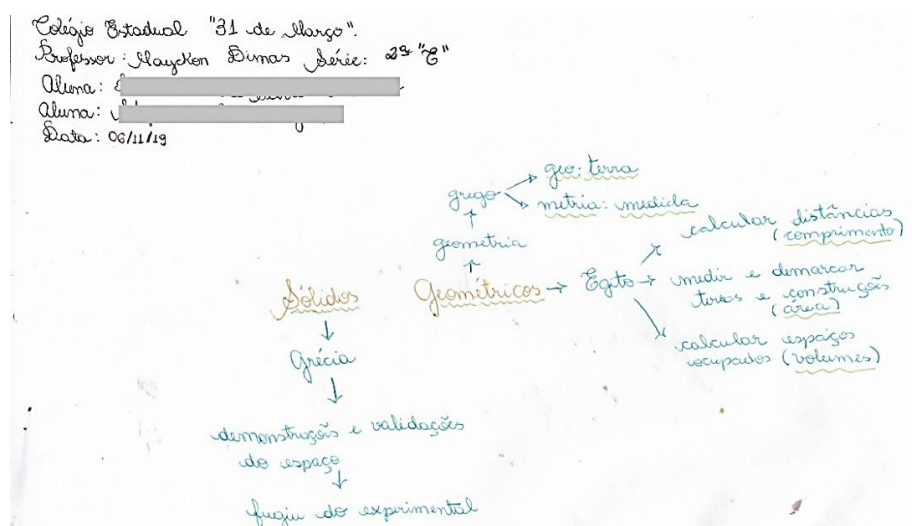 Colégio Estadual "31 de Março".
Professor: Mayckon Dimas Série: 2ª "C"
Aluna:
Aluna:
Data: 06/11/19
geo: terra
grego
metria: medida
geometria
calcular distâncias
(comprimento)
Sólidos Geométricos → Egito → medir e demarcar
terras e construções
(área)
calcular espaços
ocupados (volumes)
Grécia
demonstrações e validações
do espaço
fugiu do experimental